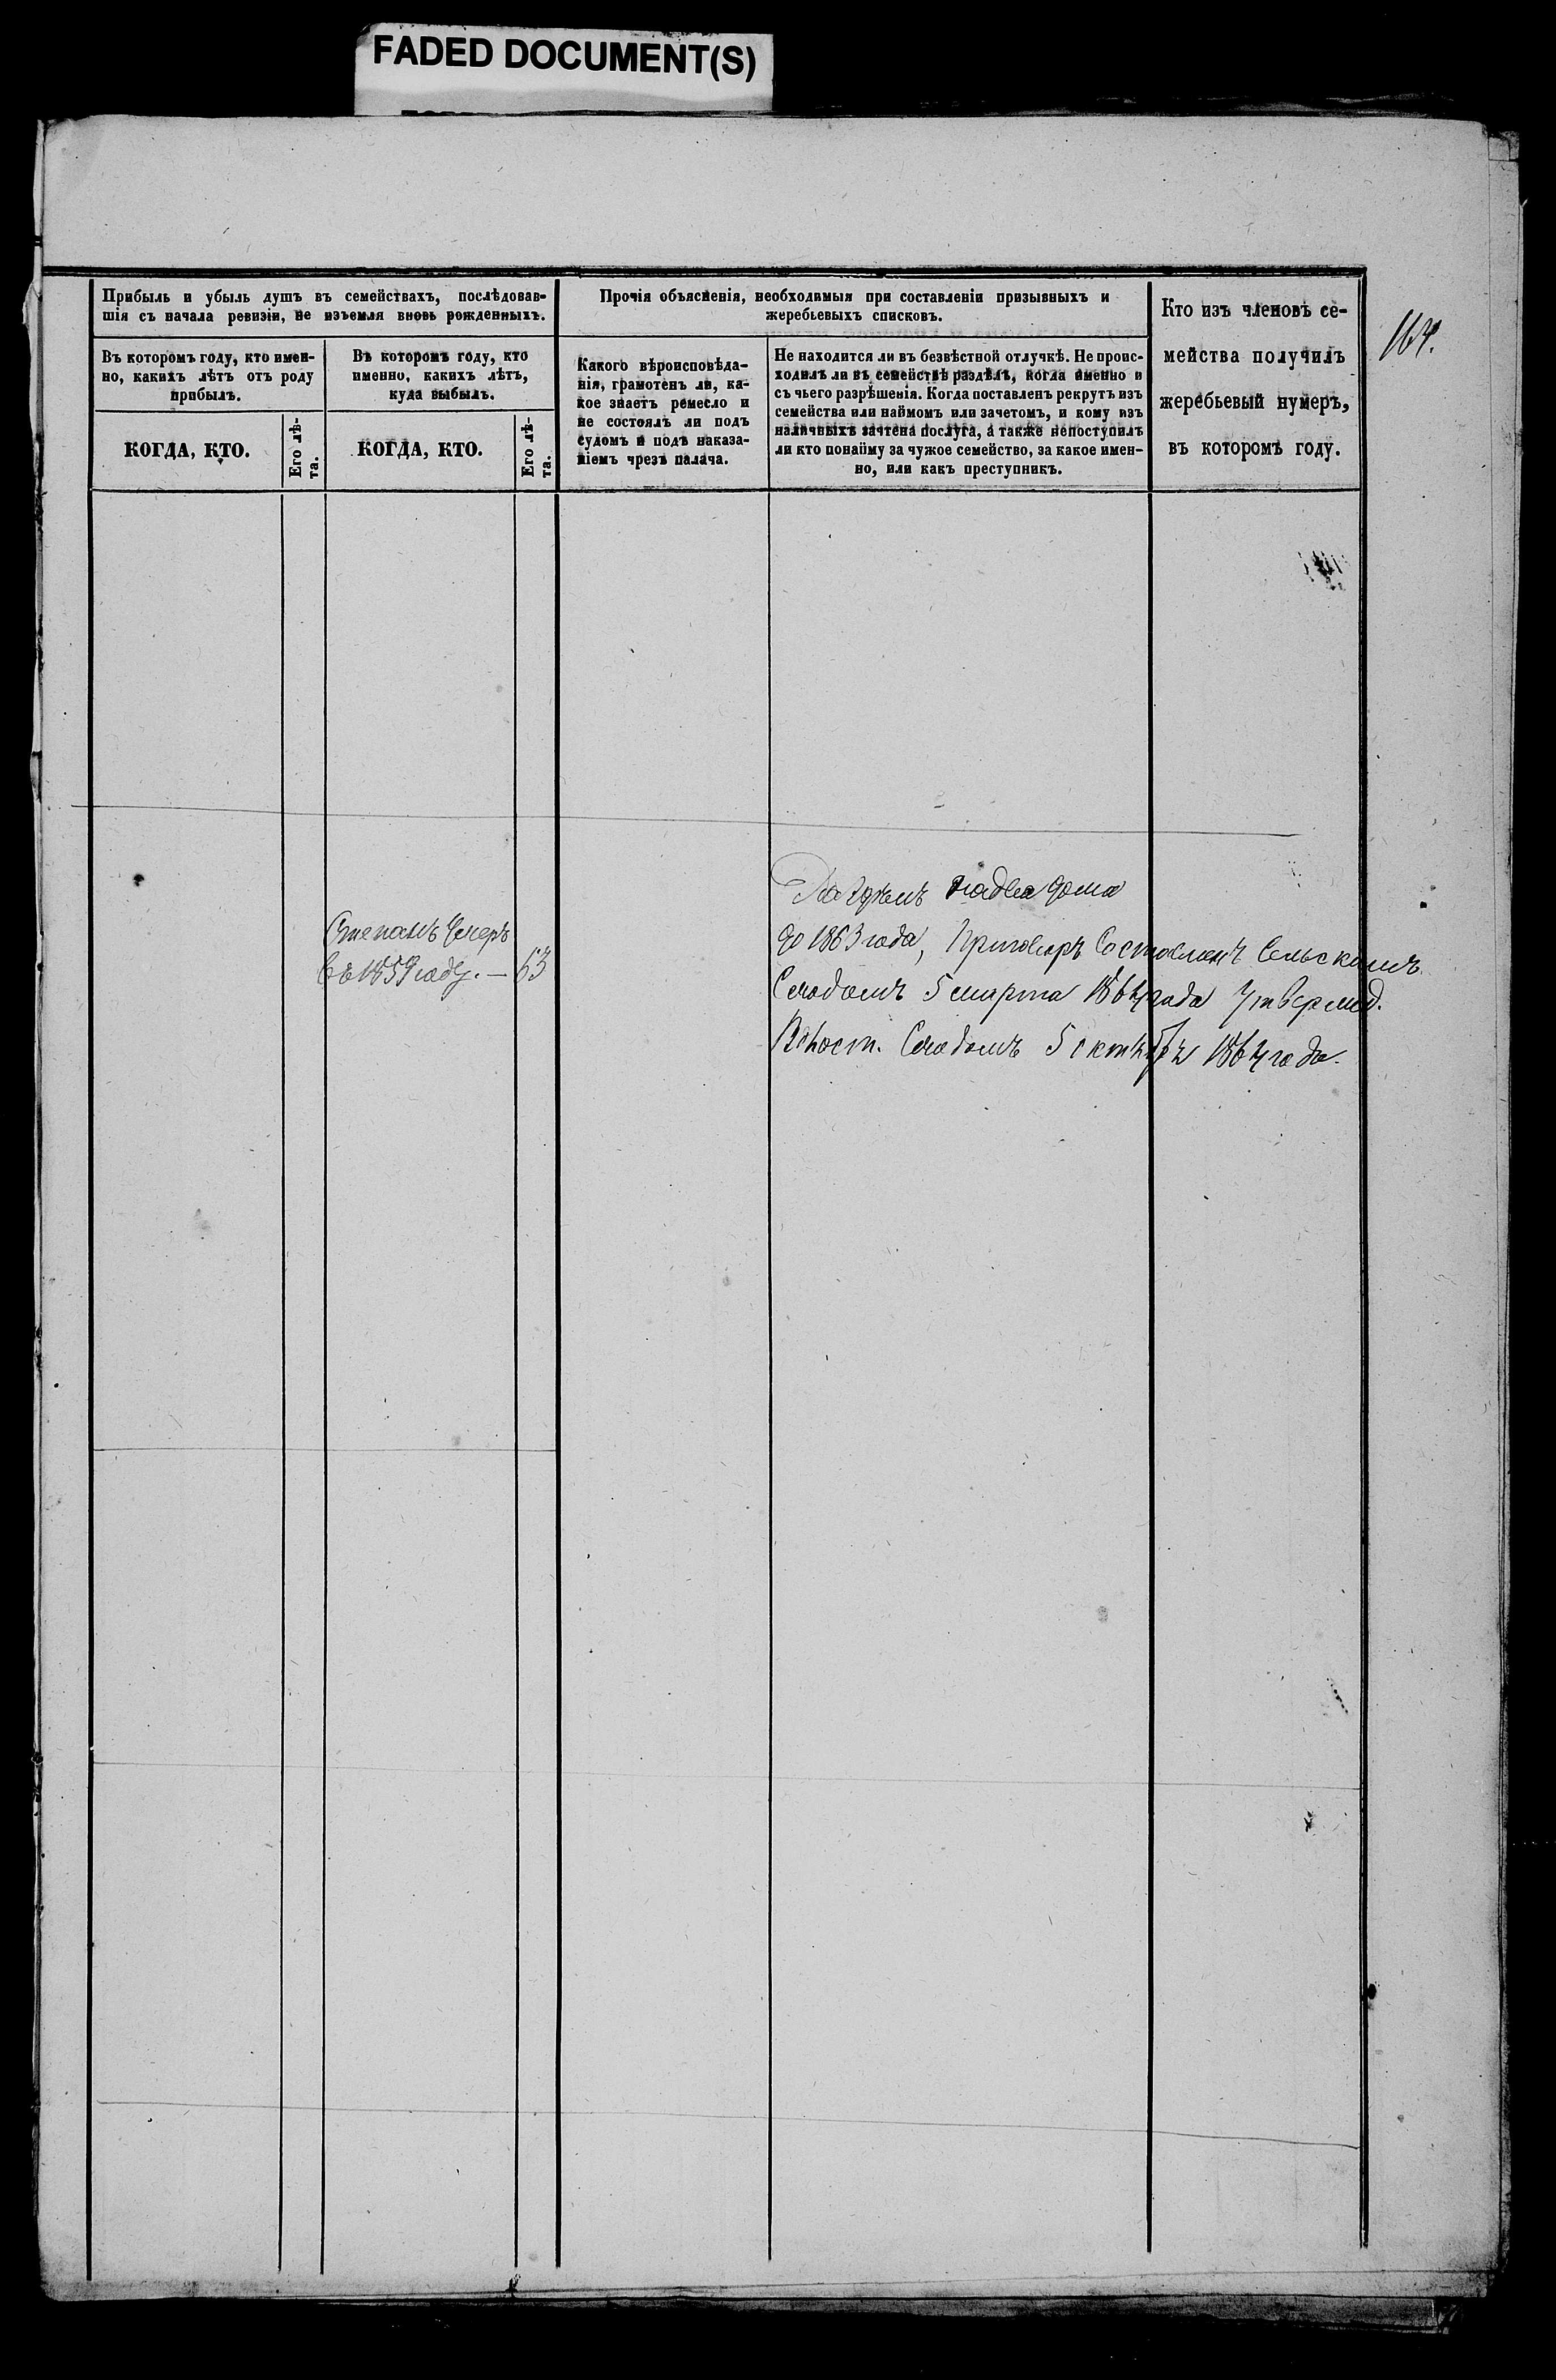 FADED DOCUMENT(S)
Прибыль и убыль душъ въ семействахъ, послѣдовав-
шія съ начала ревизіи, не изъемля вновь рожденныхъ.
Прочія объясненія, необходимыя при составленіи призывныхъ и
жеребьевыхъ списковъ.
Кто изъ членовъ се-
мейства получилъ
жеребьевый нумеръ,
въ которомъ году.
164.
Въ которомъ году, кто имен-
но, какихъ лѣтъ отъ роду
прибылъ.
Въ которомъ году, кто
именно, какихъ лѣтъ,
куда выбылъ.
Какого вѣроисповѣда-
нія, грамотенъ ли, ка-
кое знаетъ ремесло и
не состоялъ ли подъ
судомъ и подъ наказа-
ніемъ чрезъ палача.
Не находится ли въ безвѣстной отлучкѣ. Не проис-
ходилъ ли въ семействѣ раздѣлъ, когда именно и
съ чьего разрѣшенія. Когда поставленъ рекрутъ изъ
семейства или наймомъ или зачетомъ, и кому изъ
наличныхъ зачтена послуга, а также непоступилъ
ли кто понайму за чужое семейство, за какое имен-
но, или какъ преступникъ.
КОГДА, КТО.
Его лѣ-
та.
КОГДА, КТО.
Его лѣ-
та.
Степанъ Умеръ
въ 1859 году. — 63
Раздѣлъ на два дома
до 1863 года, Приговоръ Составленъ Сельскимъ
Сходомъ 5 марта 1864 года Утвержд.
Волост. Сходомъ 5 октября 1864 года.